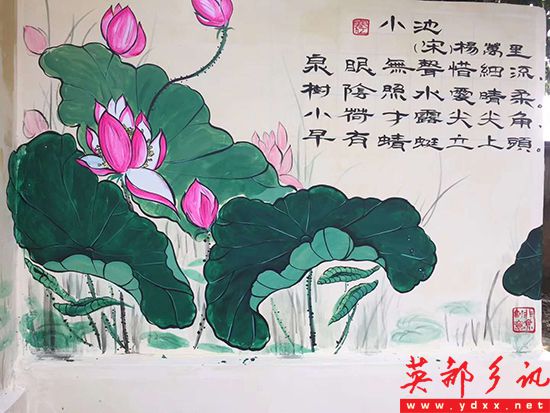 小池
(宋)楊萬里
泉眼無聲惜細流，
樹陰照水愛晴柔。
小荷才露尖尖角，
早有蜻蜓立上頭。
英都乡讯
www.ydxx.net